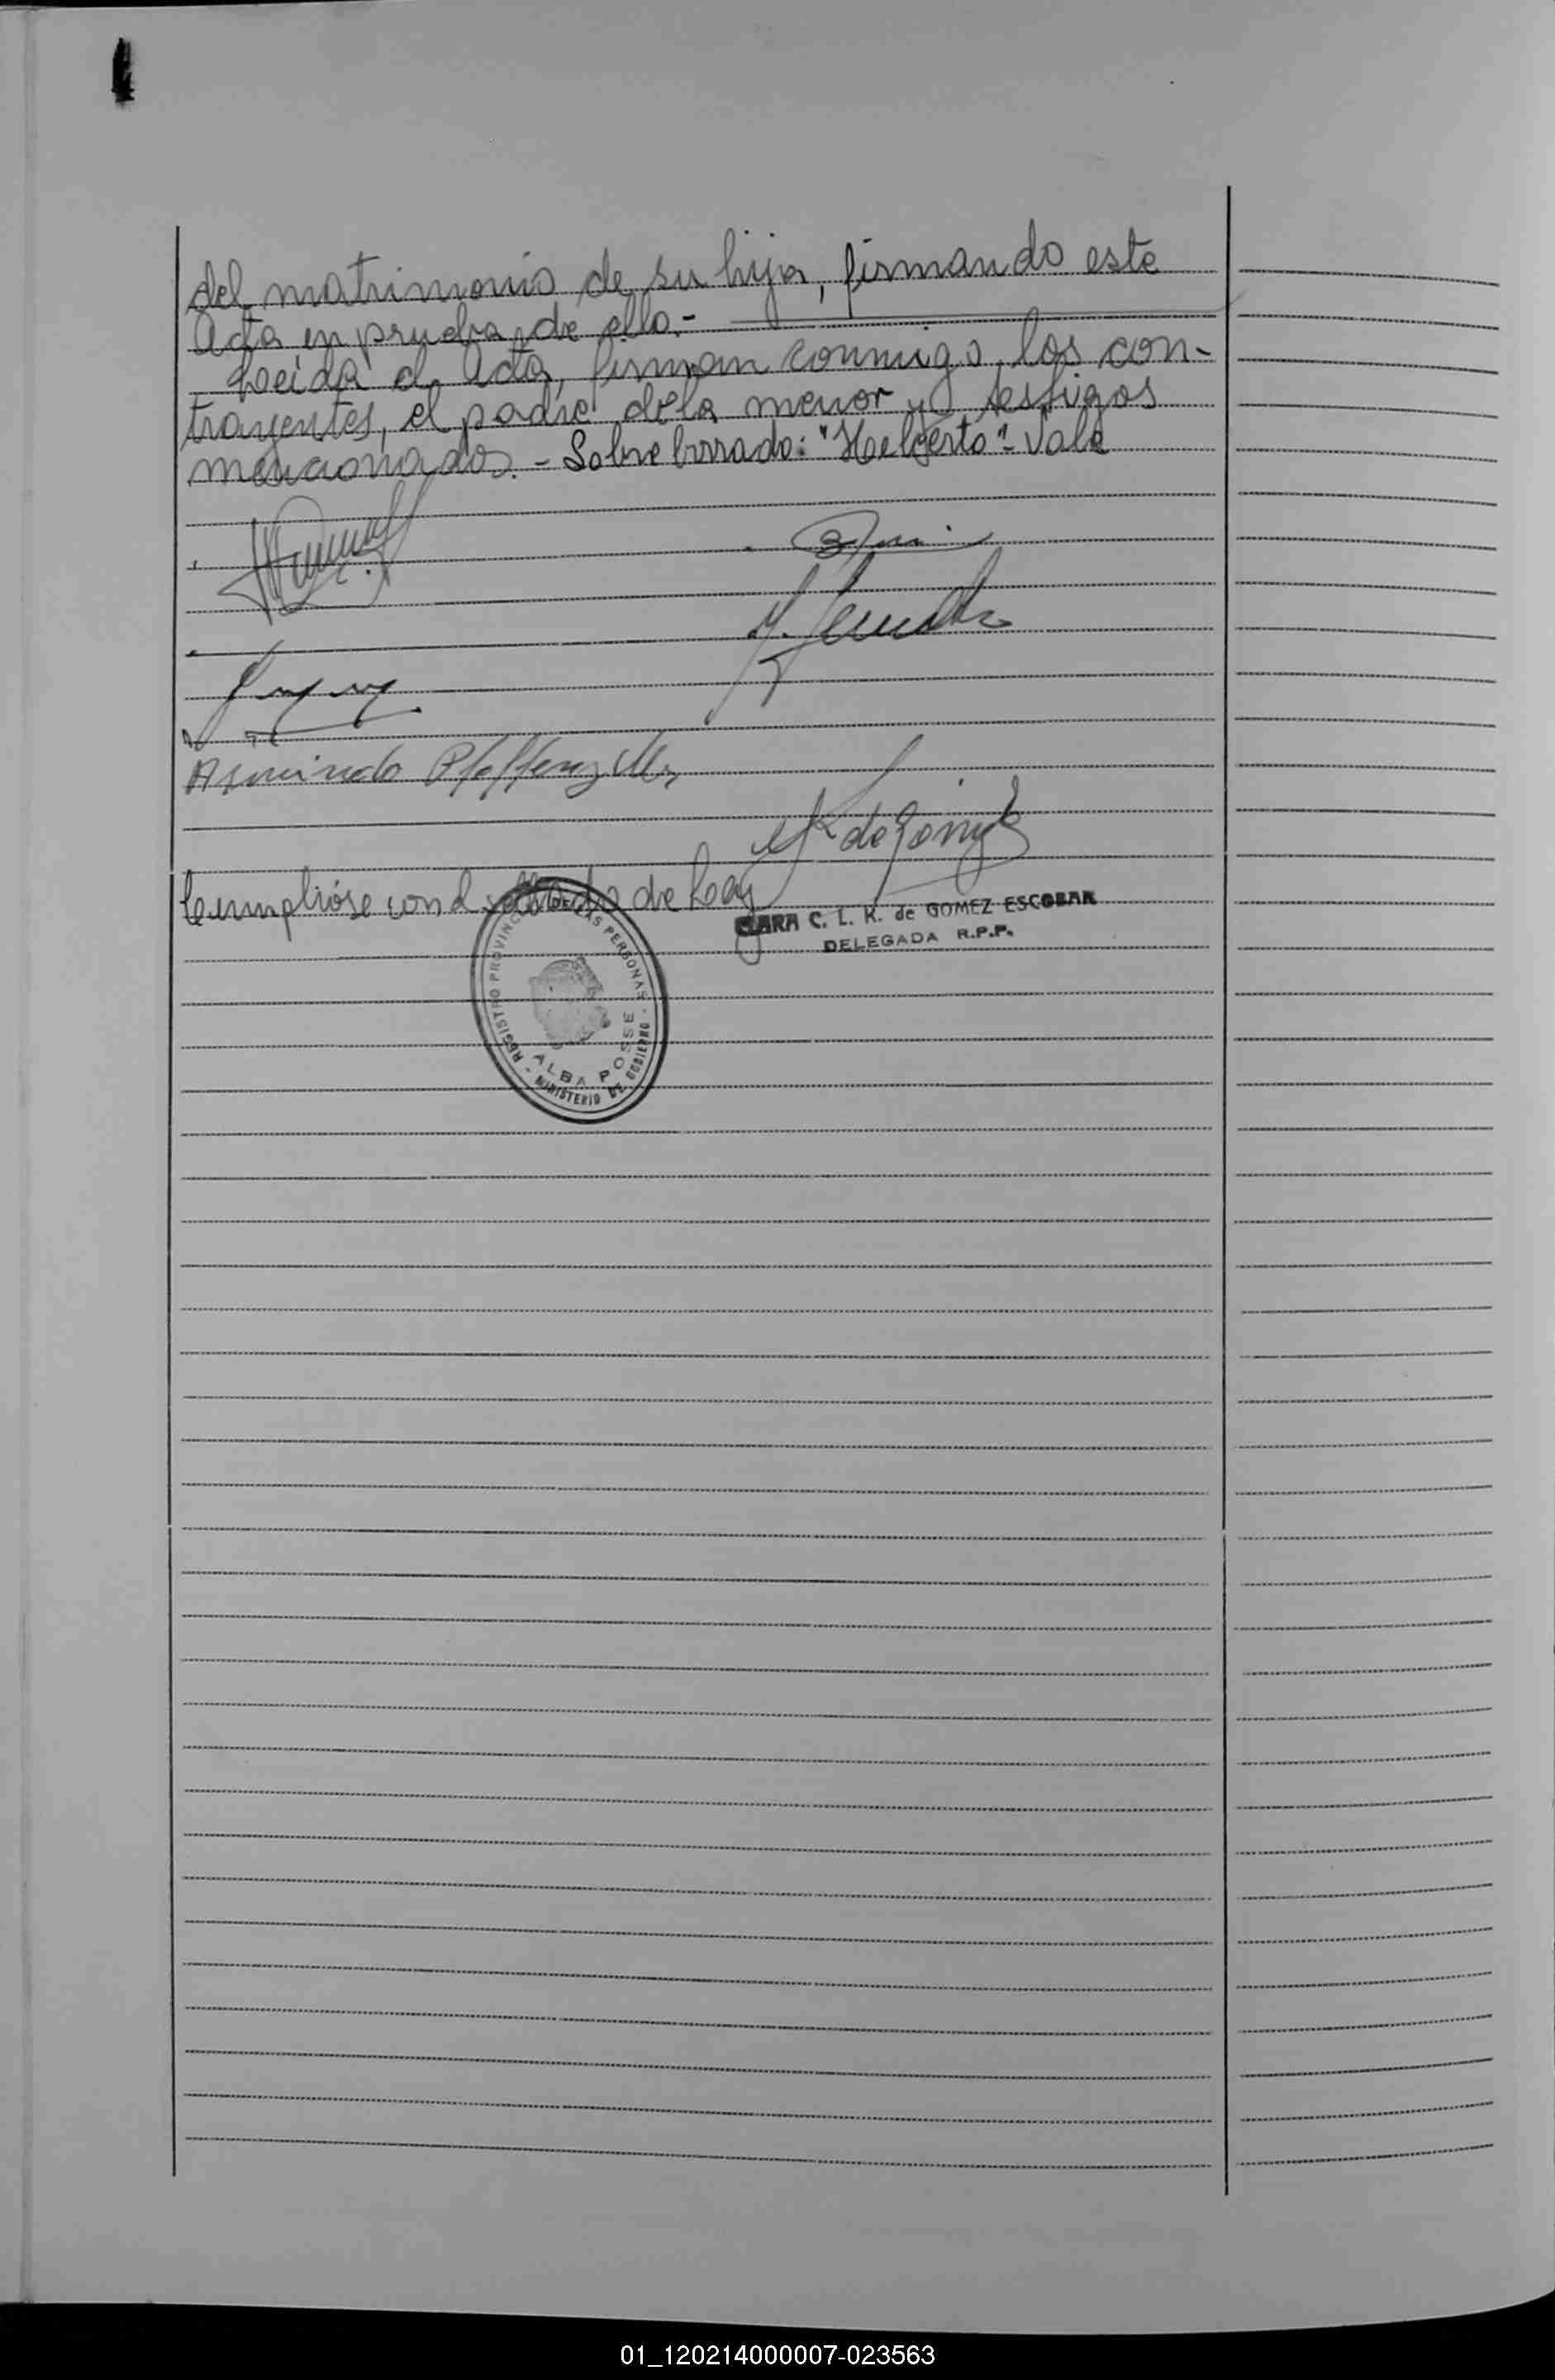 del matrimonio de su hija, firmando este
Acta en prueba de ello.-
Leída el Acta, firman conmigo los con-
trayentes, el padre de la menor y testigos
mencionados. - Sobre borrado: "Helberto" - Vale
Armindo Pfaffenzeller
K de Gómez
Cumplióse con el sellado de Ley
CLARA C. L. K. de GOMEZ ESCOBAR
DELEGADA R.P.P.
REGISTRO PROVINCIAL DE LAS PERSONAS
ALBA POSSE
- MINISTERIO DE GOBIERNO -
01_120214000007-023563